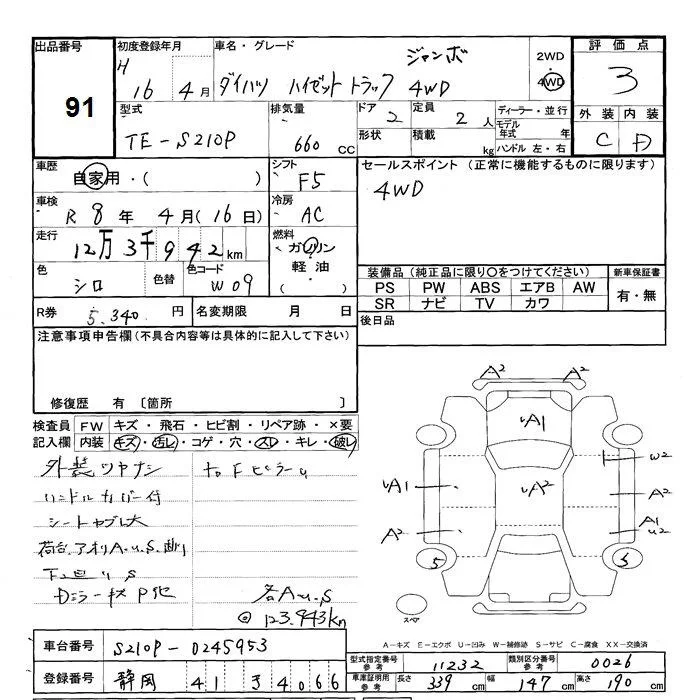 出品番号 初度登録年月 車名・グレード ジャンボ 2WD 評価点
91 H 16 4月 ダイハツ ハイゼットトラック 4WD 4WD 3
型式 排気量 ドア 定員 ディーラー・並行 外装 内装
TE-S210P 660 CC 2 2人 モデル年式 年 C D
形状 積載 kg ハンドル 左・右
車歴 自家用・( ) シフト F5 セールスポイント(正常に機能するものに限ります)
車検 R 8年 4月(16日) 冷房 AC 4WD
走行 12万3千942km 燃料 ガソリン
軽油
( )
色 シロ 色替 色コード W09 装備品(純正品に限り○をつけてください) 新車保証書
PS PW ABS エアB AW 有・無
SR ナビ TV カワ
R券 5,340円 名変期限 月 日 後日品
注意事項申告欄(不具合内容等は具体的に記入して下さい)
修復歴 有 〔箇所 〕
検査員 FW キズ・飛石・ヒビ割・リペア跡・×要
記入欄 内装 キズ・汚レ・コゲ・穴・スレ・キレ・破レ
外装ツヤナシ
ハンドルカバー付
シートヤブレ大
荷台アオリA.u.S.
下廻りS
各A.u.S
◎123,943km
A² A²
uA1
W2
uA1 uA² A²
A² A1
u2
S S
スペア
A-キズ E-エクボ U-凹み W-補修跡 S-サビ C-腐食 XX-交換済
車台番号 S210P-0245953
型式指定番号 参考 11232 類別区分番号 参考 0026
登録番号 静岡 41 34066
車庫証明用 参考 長さ 339cm 幅 147cm 高さ 190cm